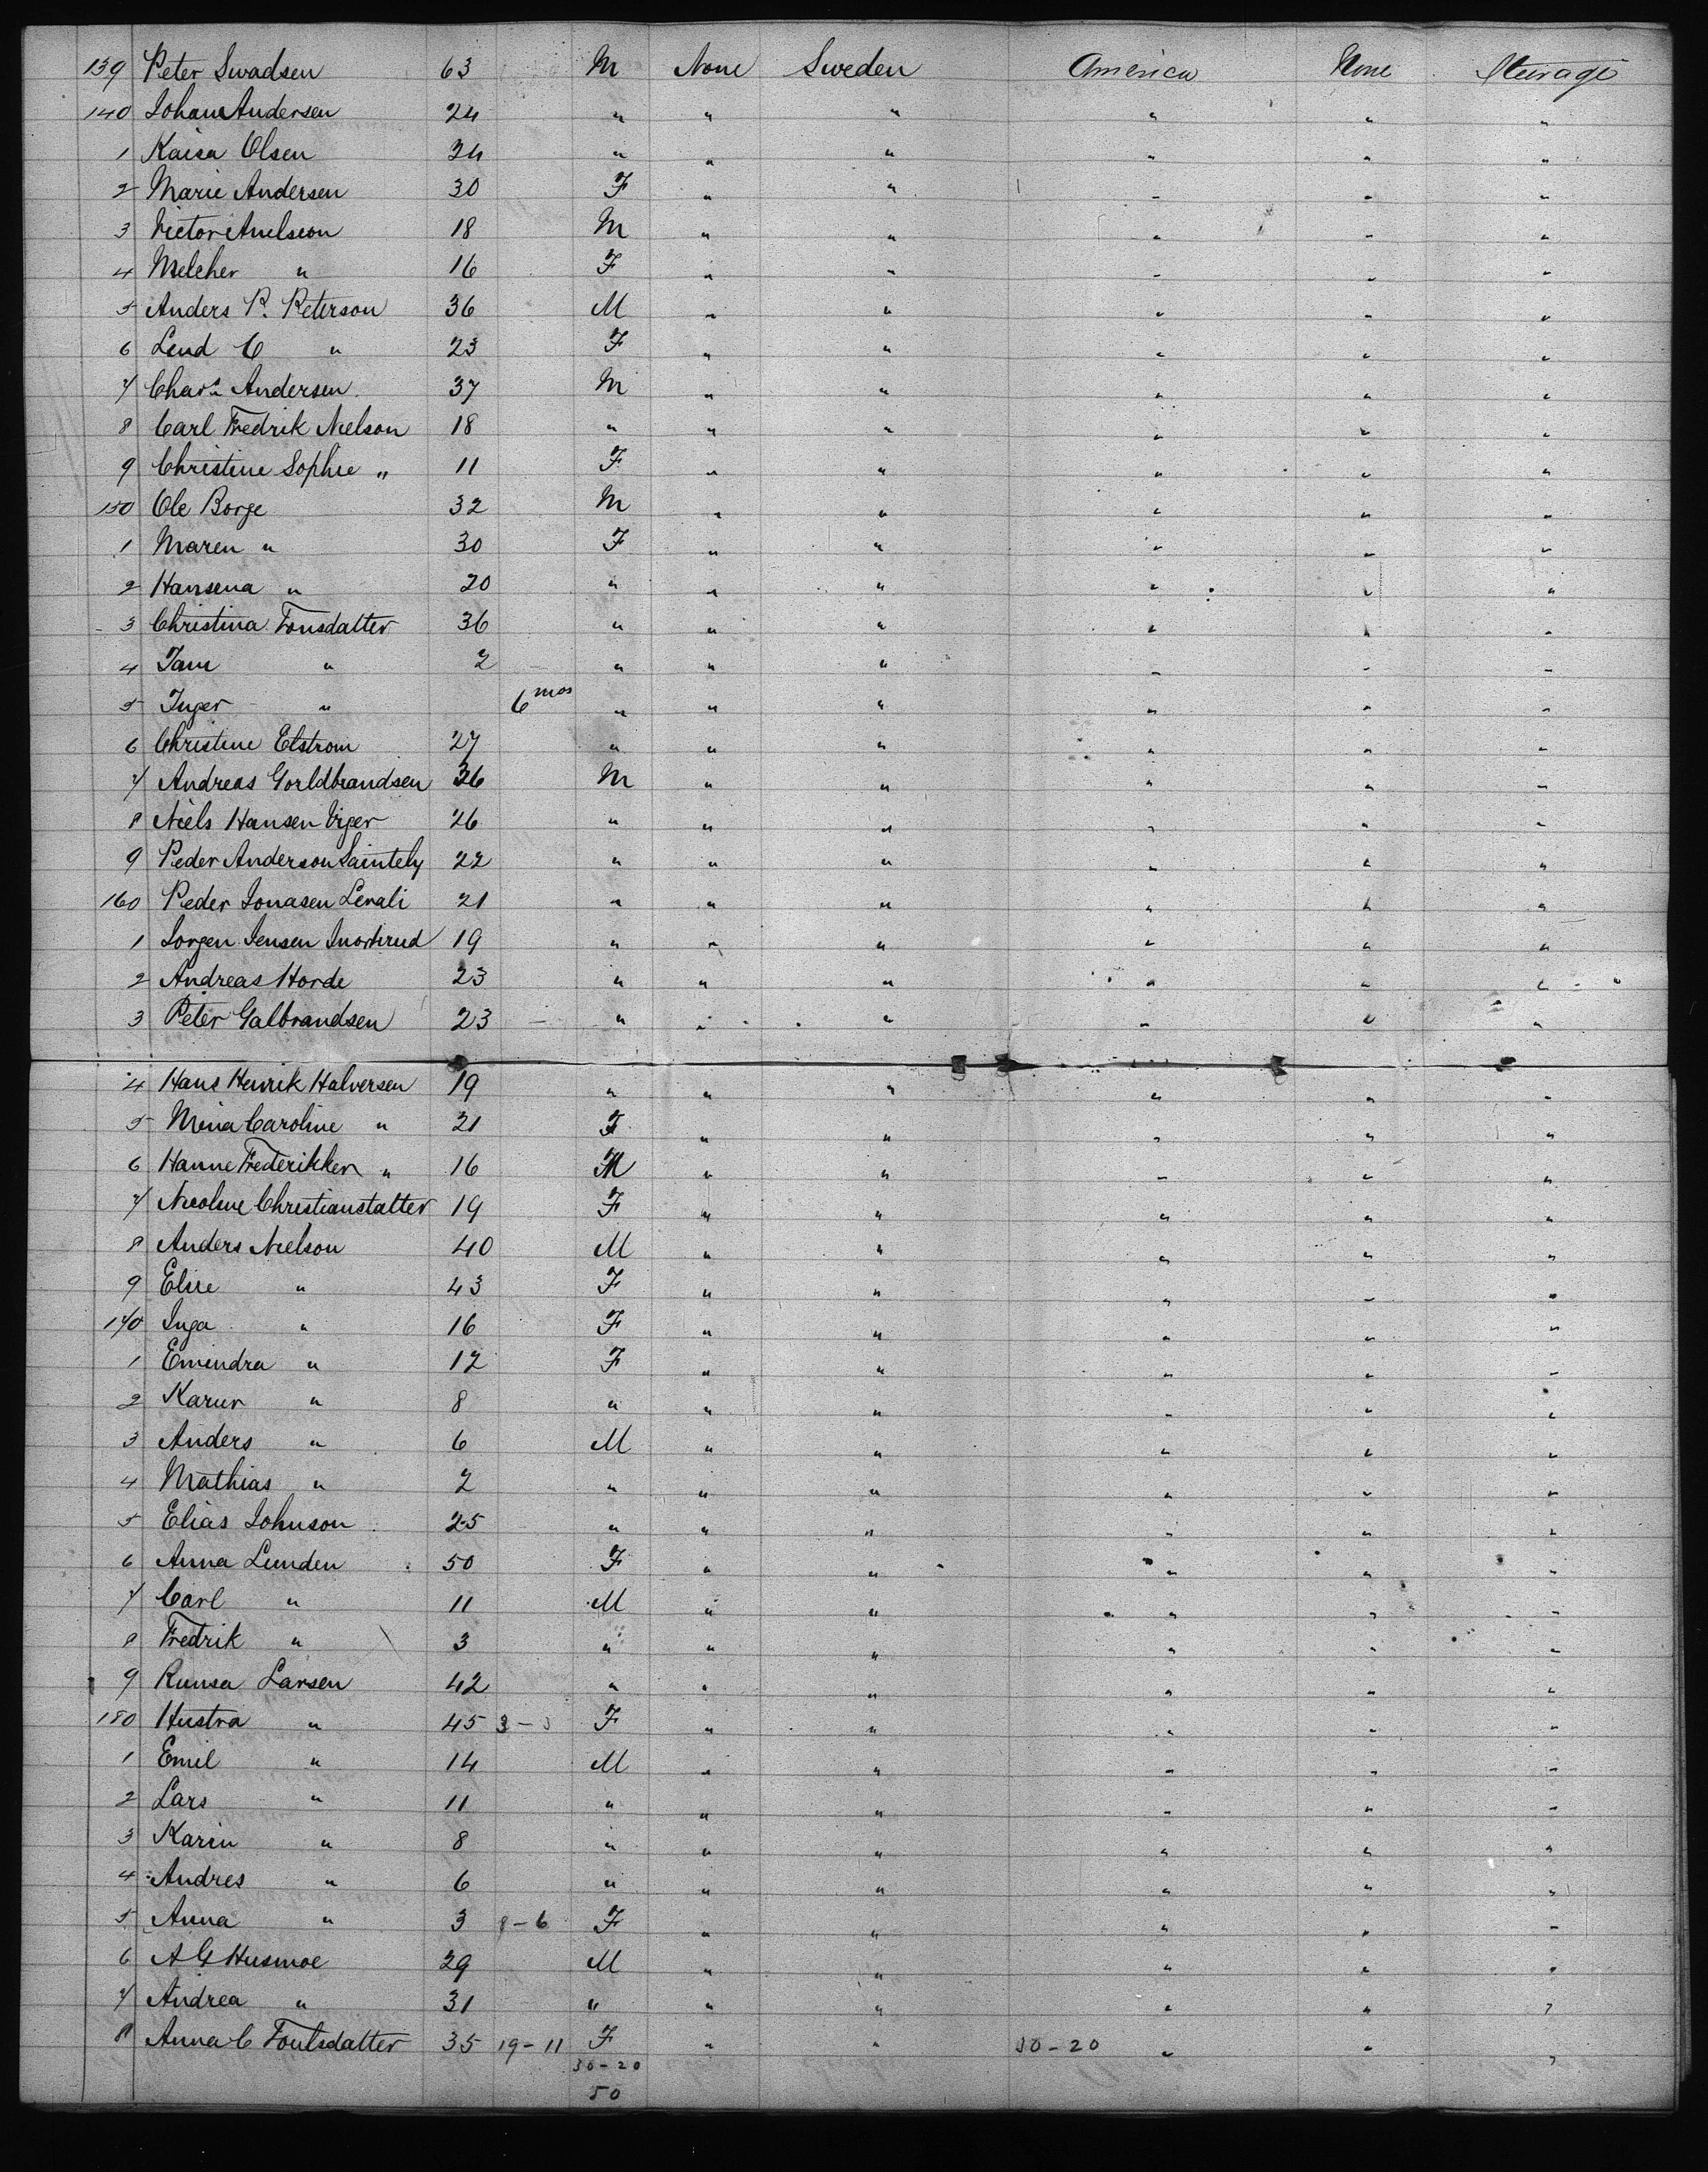 139 Peter Swadsen 63 M None Sweden America None Steerage
140 Johan Andersen 24 " " " " " "
1 Kaisa Olsen 24 " " " " " "
2 Marie Andersen 30 F " " " " "
3 Victor Anelseon 18 M " " " " "
4 Melcher " 16 F " " " " "
5 Anders P. Peterson 36 M " " " " "
6 Lend C " 23 F " " " " "
7 Chas Andersen 37 M " " " " "
8 Carl Fredrik Nielson 18 " " " " " "
9 Christine Sophie " 11 F " " " " "
150 Ole Borge 32 M " " " " "
1 Maren " 30 F " " " " "
2 Hansena " 20 " " " " " "
3 Christina Fonsdatter 36 " " " " " "
4 Jam " 2 " " " " " "
5 Inger " 6 mos " " " " " "
6 Christine Elstrom 27 " " " " " "
7 Andreas Gorldbrandsen 36 M " " " " "
8 Niels Hansen Viger 26 " " " " " "
9 Peder Anderson Saintely 22 " " " " " "
160 Peder Jonasen Lerali 21 " " " " " "
1 Jorgen Jensen 19 " " " " " "
2 Andreas Horde 23 " " " " " "
3 Peter Galbrandsen 23 " " " " " "
4 Hans Henrik Halversen 19 " " " " " "
5 Mina Caroline " 21 F " " " " "
6 Hanne Frederikken " 16 M " " " " "
7 Nicoline Christianstatter 19 F " " " " "
8 Anders Nielson 40 M " " " " "
9 Elise " 43 F " " " " "
170 Inga " 16 F " " " " "
1 Emendra " 12 F " " " " "
2 Karur " 8 " " " " " "
3 Anders " 6 M " " " " "
4 Mathias " 2 " " " " " "
5 Elias Johnson 25 " " " " " "
6 Anna Lunden 50 F " " " " "
7 Carl " 11 M " " " " "
8 Fredrik " 3 " " " " " "
9 Runsa Larsen 42 " " " " " "
180 Hustra " 45 3 - 3 F " " " " "
1 Emil " 14 M " " " " "
2 Lars " 11 " " " " " "
3 Karin " 8 " " " " " "
4 Andres " 6 " " " " " "
5 Anna " 3 8 - 6 F " " " " "
6 A G Husmoe 29 M " " " " "
7 Andrea " 31 " " " " " "
8 Anna C Foutsdatter 35 19 - 11 F " " 30 - 20 " " "
30 - 20
50